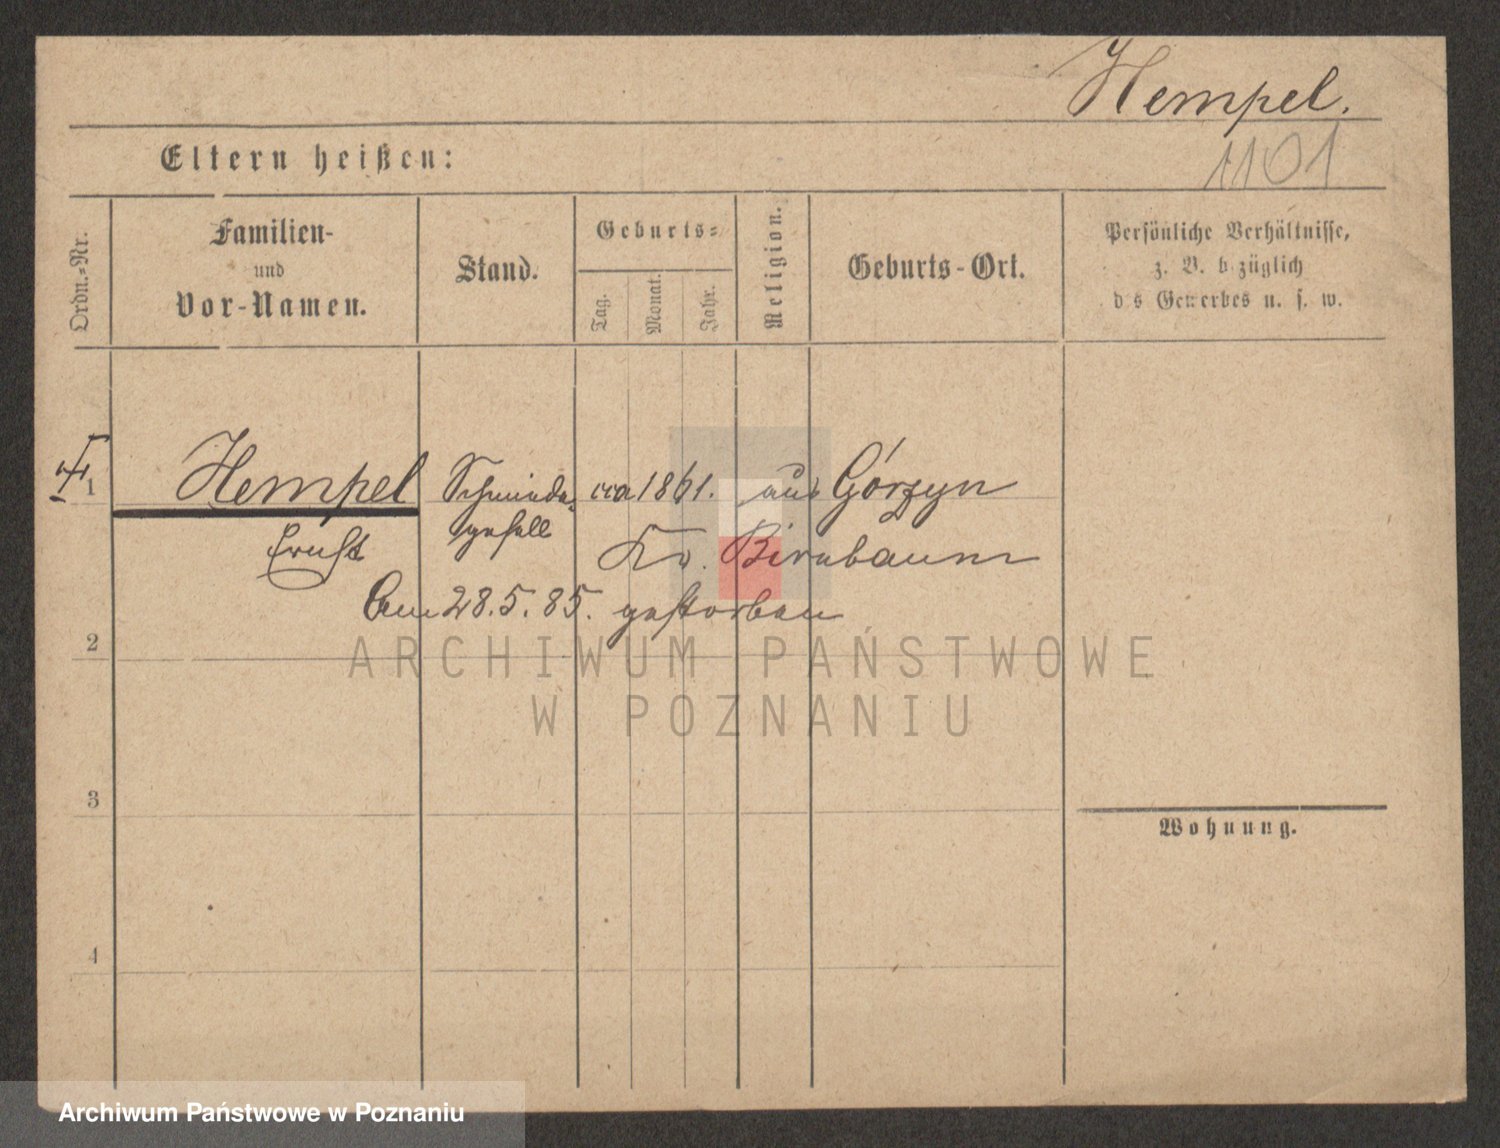 Hempel.
1101
Eltern heißen:
Ordn.-Nr.
Familien-
und
Vor-Namen.
Stand.
Geburts-
Tag.
Monat.
Jahr.
Religion.
Geburts-Ort.
Persönliche Verhältnisse,
z. B. bezüglich
d s Gewerbes u. s. w.
1 Hempel Schmiede- cca 1861. aus Górzyn
Ernst gesell Kr. Birnbaum
Am 28.5.85. gestorben
2
ARCHIWUM PAŃSTWOWE
W POZNANIU
3
Wohnung.
4
Archiwum Państwowe w Poznaniu